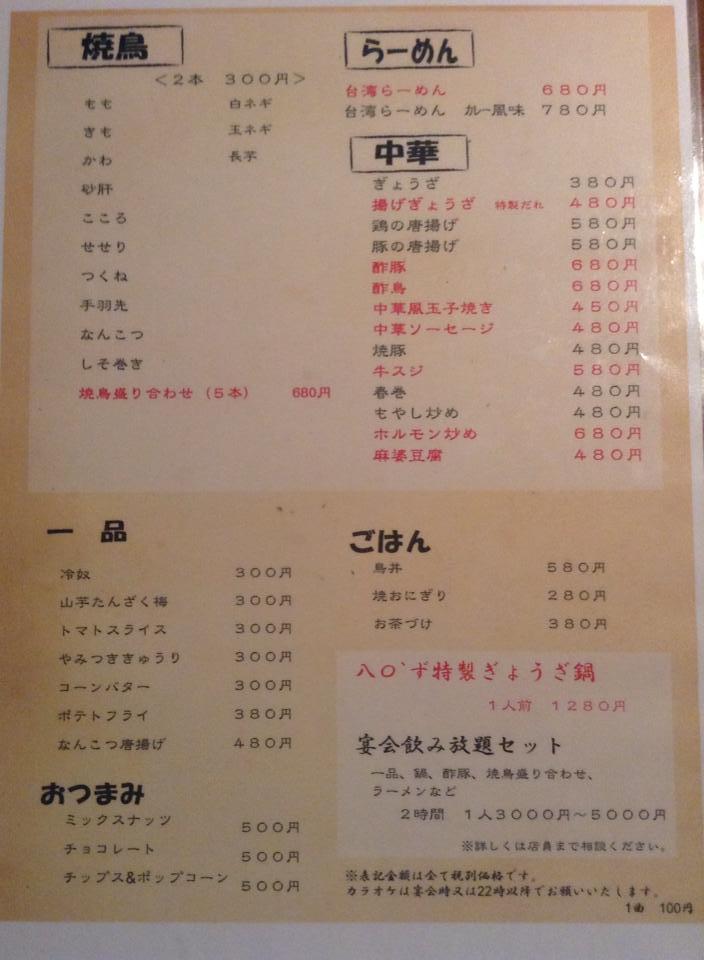 焼鳥
＜２本　３００円＞
もも　白ネギ
きも　玉ネギ
かわ　長芋
砂肝
こころ
せせり
つくね
手羽先
なんこつ
しそ巻き
焼鳥盛り合わせ（５本）　680円
らーめん
台湾らーめん　６８０円
台湾らーめん　カレー風味　７８０円
中華
ぎょうざ　３８０円
揚げぎょうざ　特製だれ　４８０円
鶏の唐揚げ　５８０円
豚の唐揚げ　５８０円
酢豚　６８０円
酢鳥　６８０円
中華風玉子焼き　４５０円
中華ソーセージ　４８０円
焼豚　４８０円
牛スジ　５８０円
春巻　４８０円
もやし炒め　４８０円
ホルモン炒め　６８０円
麻婆豆腐　４８０円
一　品
冷奴　３００円
山芋たんざく梅　３００円
トマトスライス　３００円
やみつききゅうり　３００円
コーンバター　３００円
ポテトフライ　３８０円
なんこつ唐揚げ　４８０円
おつまみ
ミックスナッツ　５００円
チョコレート　５００円
チップス&ポップコーン　５００円
ごはん
鳥丼　５８０円
焼おにぎり　２８０円
お茶づけ　３８０円
八〇`ず特製ぎょうざ鍋
１人前　１２８０円
宴会飲み放題セット
一品、鍋、酢豚、焼鳥盛り合わせ、
ラーメンなど
２時間　１人３０００円～５０００円
※詳しくは店員まで相談ください。
※表記金額は全て税別価格です。
カラオケは宴会時又は22時以降でお願いいたします。
1曲　100円